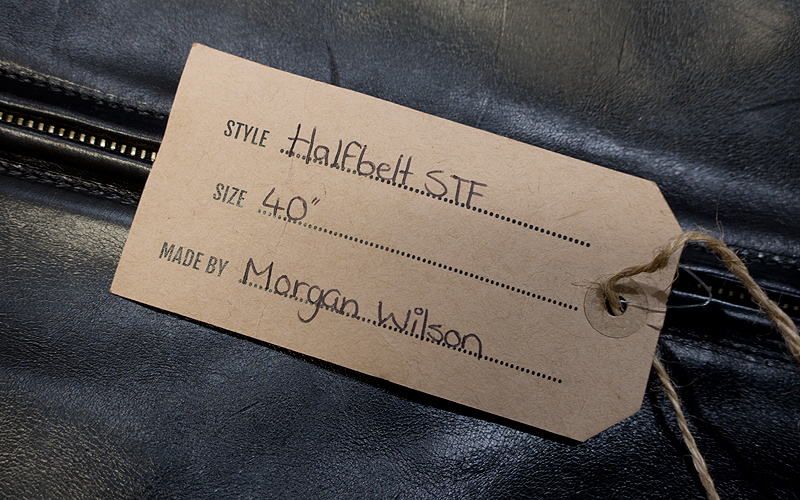 STYLE Halfbelt STF
SIZE 40"
MADE BY Morgan Wilson